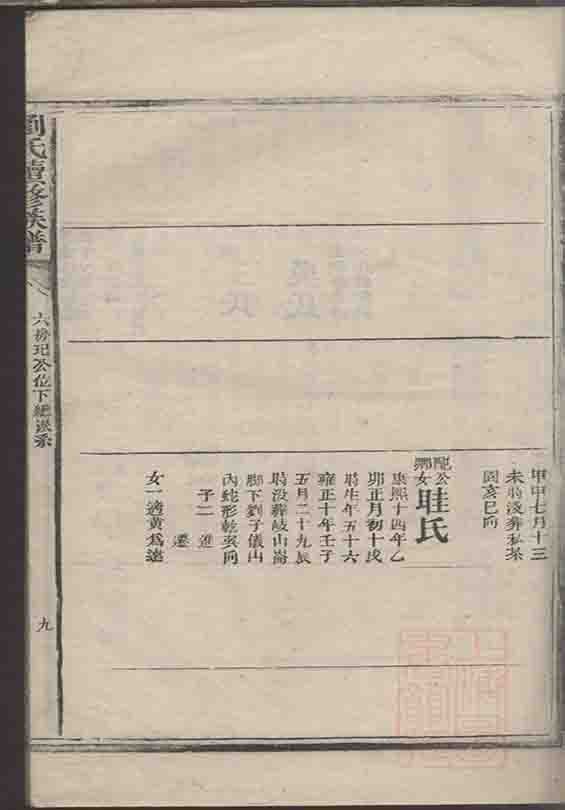 甲申七月十三
未時沒葬私茶
園亥巳向
配公
鄉女
眭氏
康熙十四年乙
卯正月初十戌
時生年五十六
雍正十年壬子
五月二十九辰
時沒葬岐山崙
腳下劉子儀山
內蛇形乾巽向
子二 進
遷
女一適黃為遠
劉氏續修族譜
六房玘公位下繼派系
九